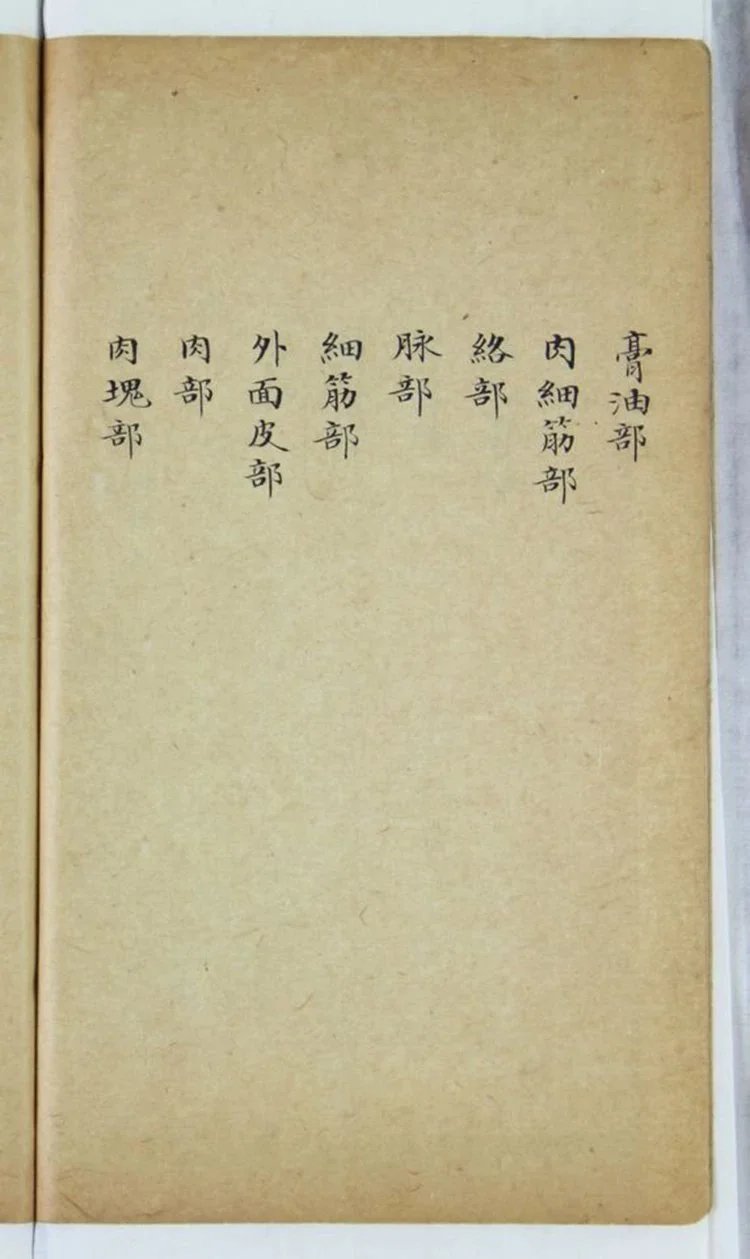 膏油部
肉細筋部
絡部
脉部
細筋部
外面皮部
肉部
肉塊部